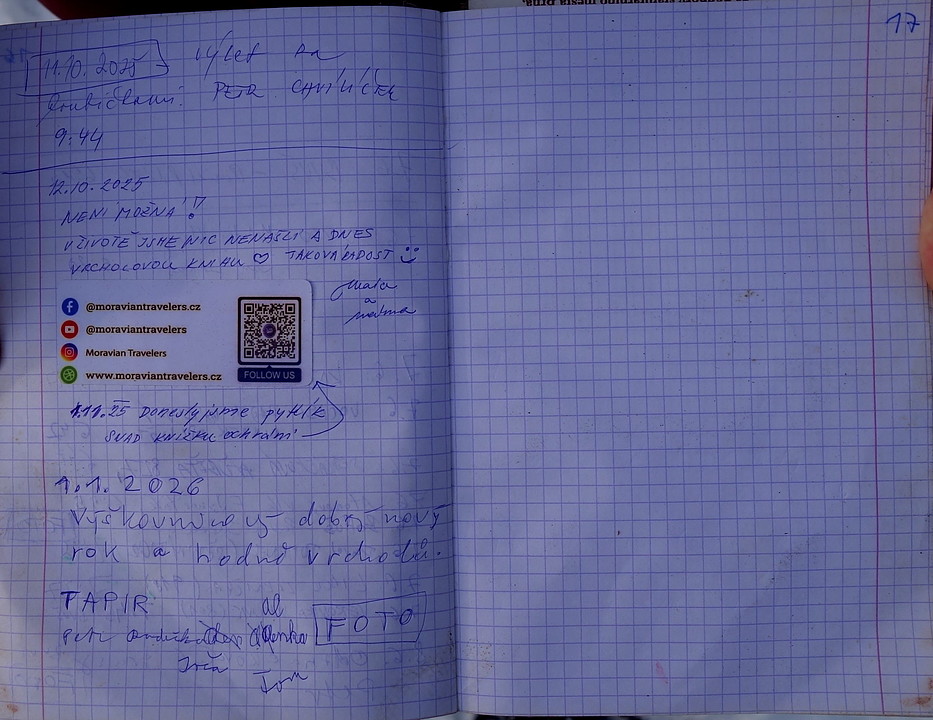 17
11.10.2025 výlet na
PETR CHVÍLÍČEK
9:44
12.10.2025
NENÍ MOŽNÁ!!
V ŽIVOTĚ JSME NIC NENAŠLI A DNES
VRCHOLOVOU KNIHU ♡ TAKOVÁ RADOST
a
@moraviantravelers.cz
@moraviantravelers
Moravian Travelers
www.moraviantravelers.cz
FOLLOW US
1.11.25 Donesly jsme pytlík
SNAD KNÍŽKU ochrání
1.1.2026
Výškovnicový dobrý nový
rok a hodně vrcholů.
TAPIR
FOTO
Petr
Tom